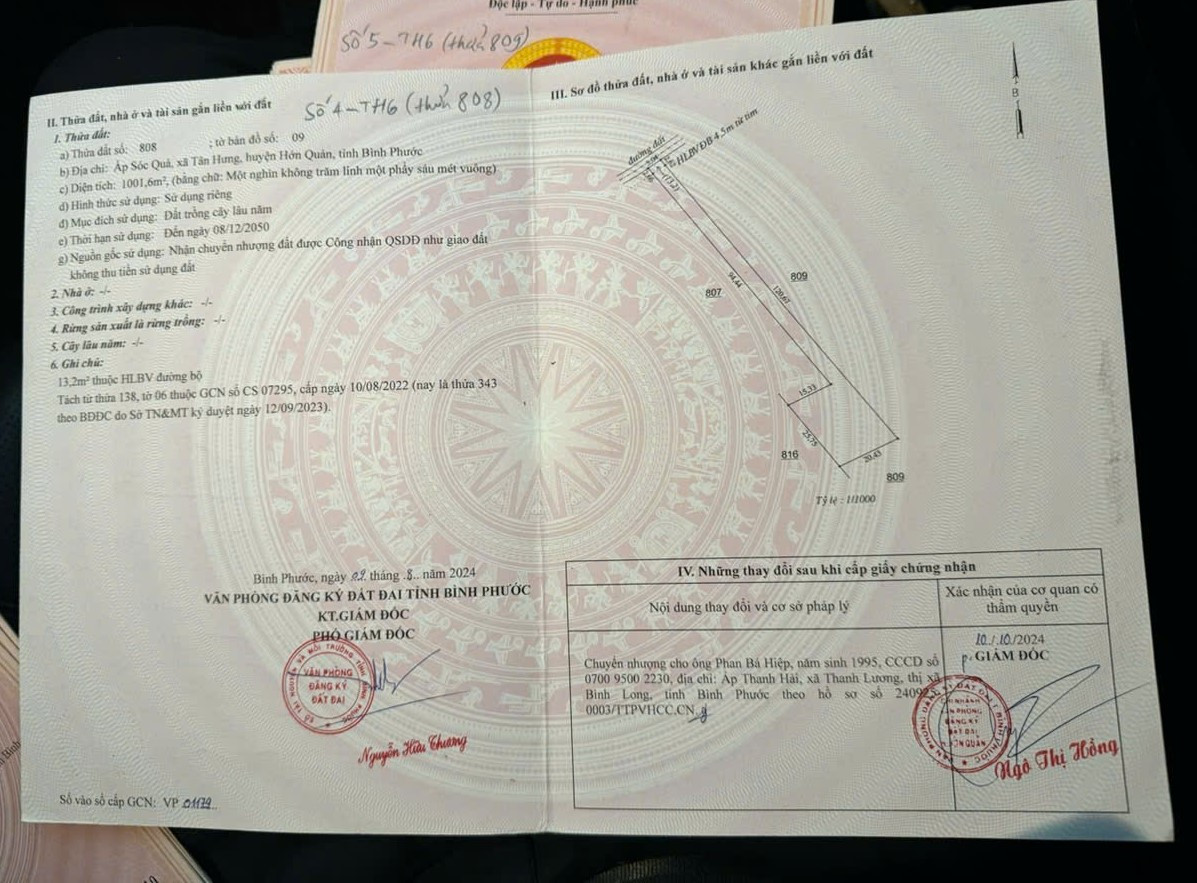 Độc lập - Tự do - Hạnh phúc
Số 5 - TH6 (thửa 809)
II. Thửa đất, nhà ở và tài sản gắn liền với đất
Số 4 - TH6 (thửa 808)
1. Thửa đất:
a) Thửa đất số: 808 ; tờ bản đồ số: 09
b) Địa chỉ: Ấp Sóc Quả, xã Tân Hưng, huyện Hớn Quản, tỉnh Bình Phước
c) Diện tích: 1001,6m², (bằng chữ: Một nghìn không trăm linh một phẩy sáu mét vuông)
d) Hình thức sử dụng: Sử dụng riêng
đ) Mục đích sử dụng: Đất trồng cây lâu năm
e) Thời hạn sử dụng: Đến ngày 08/12/2050
g) Nguồn gốc sử dụng: Nhận chuyển nhượng đất được Công nhận QSDĐ như giao đất
không thu tiền sử dụng đất
2. Nhà ở: -/-
3. Công trình xây dựng khác: -/-
4. Rừng sản xuất là rừng trồng: -/-
5. Cây lâu năm: -/-
6. Ghi chú:
13,2m² thuộc HLBV đường bộ
Tách từ thửa 138, tờ 06 thuộc GCN số CS 07295, cấp ngày 10/08/2022 (nay là thửa 343
theo BĐĐC do Sở TN&MT ký duyệt ngày 12/09/2023).
Bình Phước, ngày 02 tháng .8.. năm 2024
VĂN PHÒNG ĐĂNG KÝ ĐẤT ĐAI TỈNH BÌNH PHƯỚC
KT.GIÁM ĐỐC
PHÓ GIÁM ĐỐC
VĂN PHÒNG
ĐĂNG KÝ
ĐẤT ĐAI
Nguyễn Hữu Thương
Số vào sổ cấp GCN: VP 01179..
III. Sơ đồ thửa đất, nhà ở và tài sản khác gắn liền với đất
B
đường đất
HLBVĐB 4,5m từ tim
(13.2)
807
94.44
809
120.61
15.33
25.75
816
20.43
809
Tỷ lệ : 1/1000
IV. Những thay đổi sau khi cấp giấy chứng nhận
Nội dung thay đổi và cơ sở pháp lý
Xác nhận của cơ quan có
thẩm quyền
Chuyển nhượng cho ông Phan Bá Hiệp, năm sinh 1995, CCCD số
0700 9500 2230, địa chỉ: Ấp Thanh Hải, xã Thanh Lương, thị xã
Bình Long, tỉnh Bình Phước theo hồ sơ số 240925
0003/TTPVHCC.CN
10./.10/2024
P. GIÁM ĐỐC
CHI NHÁNH
VĂN PHÒNG
ĐĂNG KÝ
ĐẤT ĐAI
HỚN QUẢN
Ngô Thị Hồng